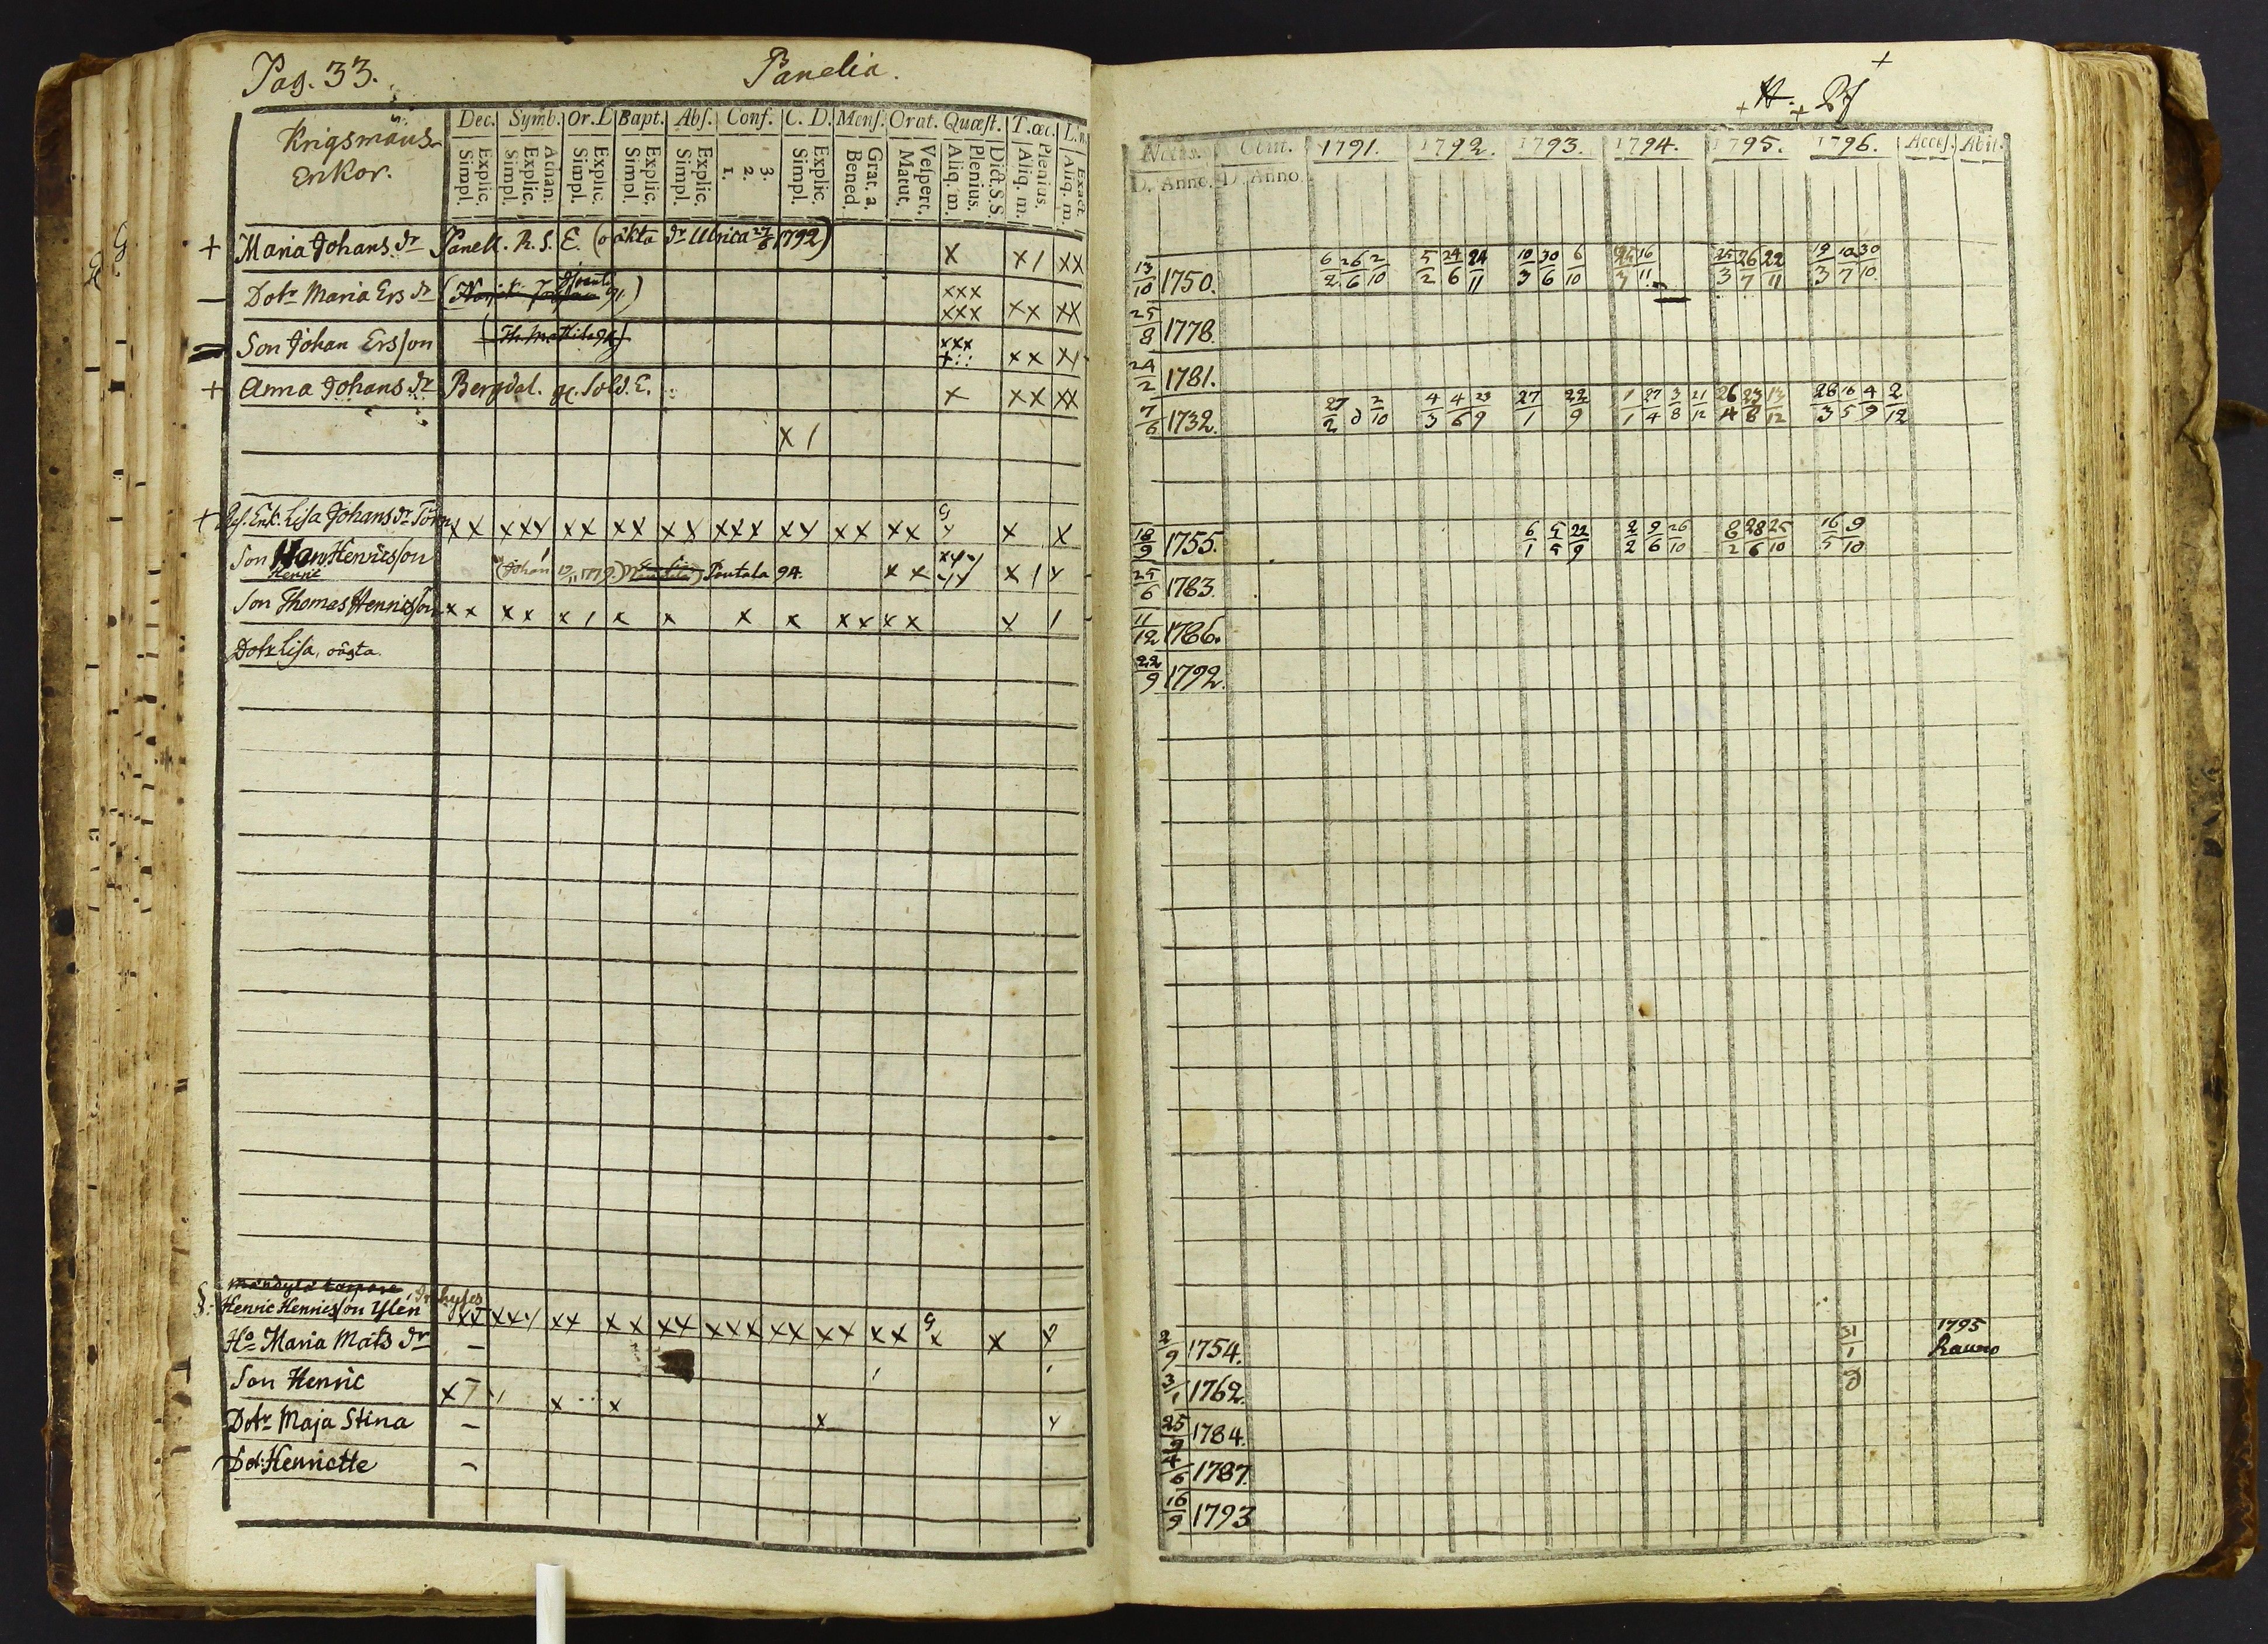 Pag. 33.
Panelia.
Krigsmäns
Enkor.
Dec. Symb. Or. D Bapt. Abs. Conf. C. D. Mens. Orat. Quæst. T. œc. L. n.
Explic. Simpl.
Athan. Explic. Simpl.
Explic. Simpl.
Explic. Simpl.
Explic. Simpl.
3. 2. 1.
Explic. Simpl.
Grat. a. Bened.
Vespert. Matut.
Dict. S.S. Plenius. Aliq. m.
Plenius. Aliq. m.
Exact. Aliq. m.
+ Maria Johans dr Panell. R. S. E. (oäkta dr Ulrica 27/6 1792) x x / xx
— Dotr Maria Ers dr xxx xxx xx xx
= Son Johan Ersson xxx xx
+ Anna Johans dr Bergdal. gl. Sold. E. x xx xx
x /
+ Enk. Lisa Johans dr xx xxx xx xx xx xxx xx xx xx x x
Son Henricsson
Henric
(Johan 1779.) 94. xx x / x
Son Thomas Henricsson xx xx x / x x x x xx xx x /
Dotr Lisa, oägta.
§. Henric Henricsson Ylén Inhyses
xx xxx xx xx xx xxx xx xx xx x x
Ho Maria Mats dr —
Son Henric
Dotr Maja Stina —
Dot: Henriette —
Natus. Obiit. 1791. 1792. 1793. 1794. 1795. 1796. Access. Abit.
D. Anno. D. Anno
13/10 1750. 6/2 26/6 2/10 5/2 24/6 24/11 10/3 30/6 6/10 16/11 25/3 26/7 22/11 19/3 10/7 30/10
25/8 1778.
24/2 1781.
7/6 1732. 27/2 2/10 4/3 4/6 23/9 27/1 22/9 1/1 27/4 3/8 21/12 26/4 23/8 13/12 28/3 16/5 4/9 2/12
18/9 1755. 6/1 5/5 22/9 2/2 9/6 26/10 8/2 28/6 25/10 16/5 9/10
25/6 1783.
11/12 1786.
22/9 1792.
2/9 1754. 31/1 1795 Raumo
3/1 1762.
25/9 1784.
4/6 1787.
16/9 1793